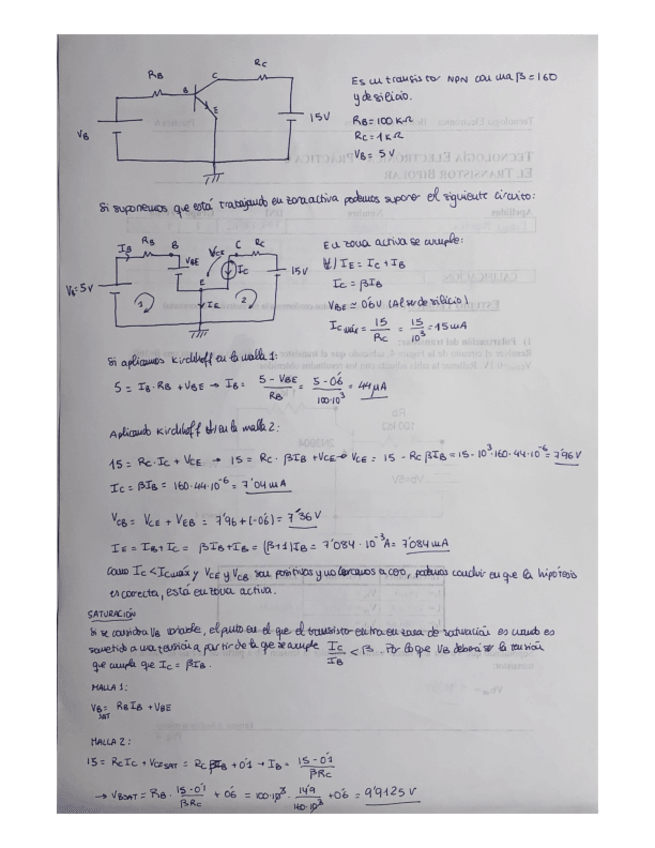 RB
RC
B
C
E
VB
15V
Es un transistor NPN con una β = 160
y de silicio.
RB = 100 KΩ
RC = 1 KΩ
VB = 5 V
TECNOLOGÍA ELECTRÓNICA PRÁCTICA
EL TRANSISTOR BIPOLAR
Si suponemos que está trabajando en zona activa podemos suponer el siguiente circuito:
IB RB B VCE C RC
VBE
IC
15V
VB = 5V
E
1
IE
2
En zona activa se cumple:
IE = IC + IB
IC = βIB
VBE ≃ 0'6V (Al ser de silicio)
IC máx = 15/RC = 15/10³ = 15 mA
Si aplicamos Kirchhoff en la malla 1:
5 = IB·RB + VBE → IB = (5 - VBE)/RB = (5 - 0'6)/(100·10³) = 44 μA
Aplicando Kirchhoff en la malla 2:
15 = RC·IC + VCE → 15 = RC·βIB + VCE → VCE = 15 - RCβIB = 15 - 10³·160·44·10⁻⁶ = 7'96 V
IC = βIB = 160·44·10⁻⁶ = 7'04 mA
VCB = VCE + VEB = 7'96 + (-0'6) = 7'36 V
IE = IB + IC = βIB + IB = (β+1)IB = 7'084·10⁻³A = 7'084 mA
Como IC < ICmáx y VCE y VCB son positivas y no cercanos a cero, podemos concluir en que la hipótesis
es correcta, está en zona activa.
SATURACIÓN
Si se considera VB variable, el punto en el que el transistor entra en zona de saturación es cuando es
sometido a una tensión a partir de la que se cumple IC/IB < β. Por lo que VB deberá ser la tensión
que cumpla que IC = βIB.
MALLA 1:
VB SAT = RB IB + VBE
MALLA 2:
15 = RC IC + VCE SAT = RC βIB + 0'1 → IB = (15 - 0'1)/(βRC)
→ VB SAT = RB · (15 - 0'1)/(βRC) + 0'6 = 100·10³ · 14'9/(160·10³) + 0'6 = 9'9125 V